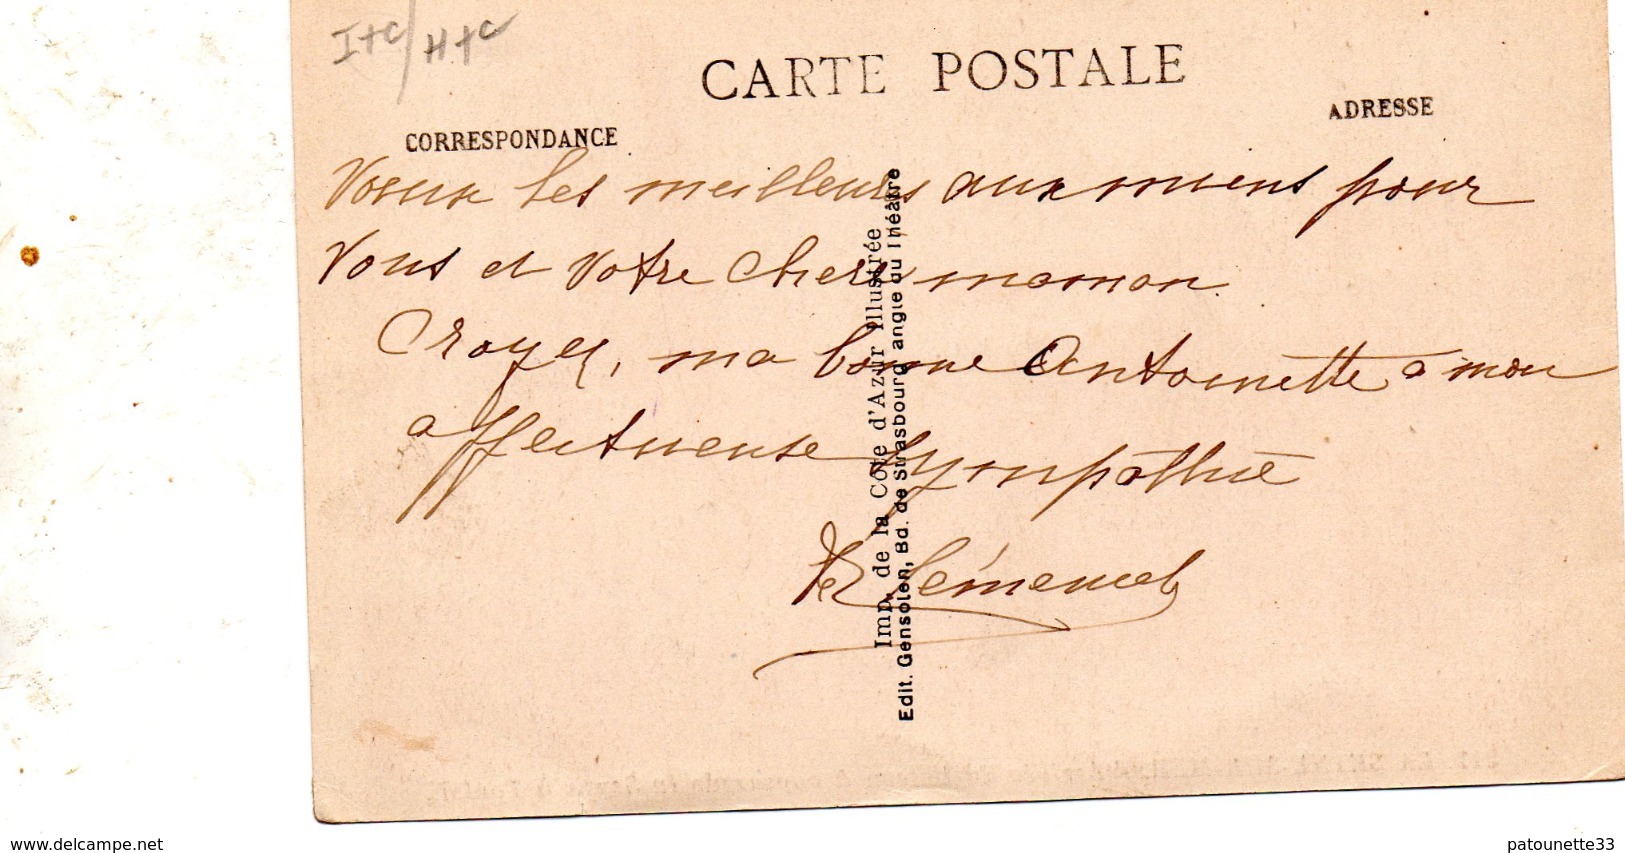 I+C/H+C
CARTE POSTALE
CORRESPONDANCE
ADRESSE
Voeux les meilleurs aux miens pour
Vous et votre chere maman.
Croyez, ma bonne Antoinette à mon
affectueuse sympathie
Imp. de la Côte d'Azur Illustrée
Edit. Gensolen, Bd. de Strasbourg, angle du Théâtre
delcampe.net
patounette33